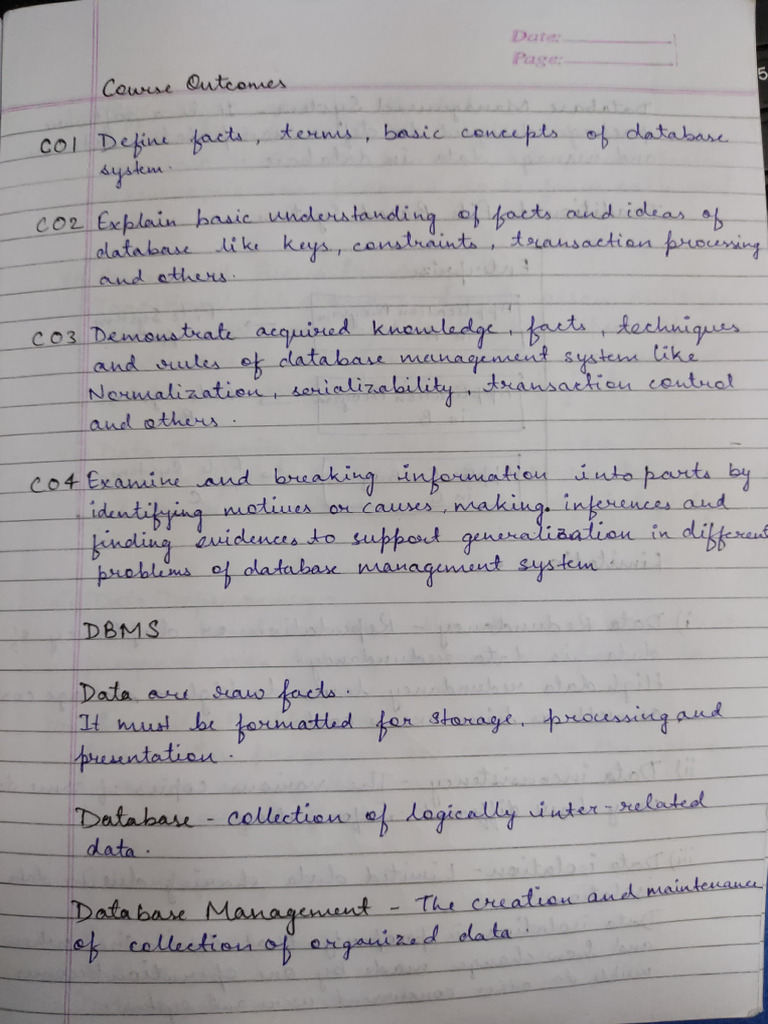 Date:
Page:
Course Outcomes
CO1 Define facts, terms, basic concepts of database
system.
CO2 Explain basic understanding of facts and ideas of
database like keys, constraints, transaction processing
and others.
CO3 Demonstrate acquired knowledge, facts, techniques
and rules of database management system like
Normalization, serializability, transaction control
and others.
CO4 Examine and breaking information into parts by
identifying motives or causes, making. inferences and
finding evidences to support generalization in different
problems of database management system
DBMS
Data are raw facts.
It must be formatted for storage, processing and
presentation.
Database - collection of logically inter-related
data.
Database Management - The creation and maintenance
of collection of organized data.